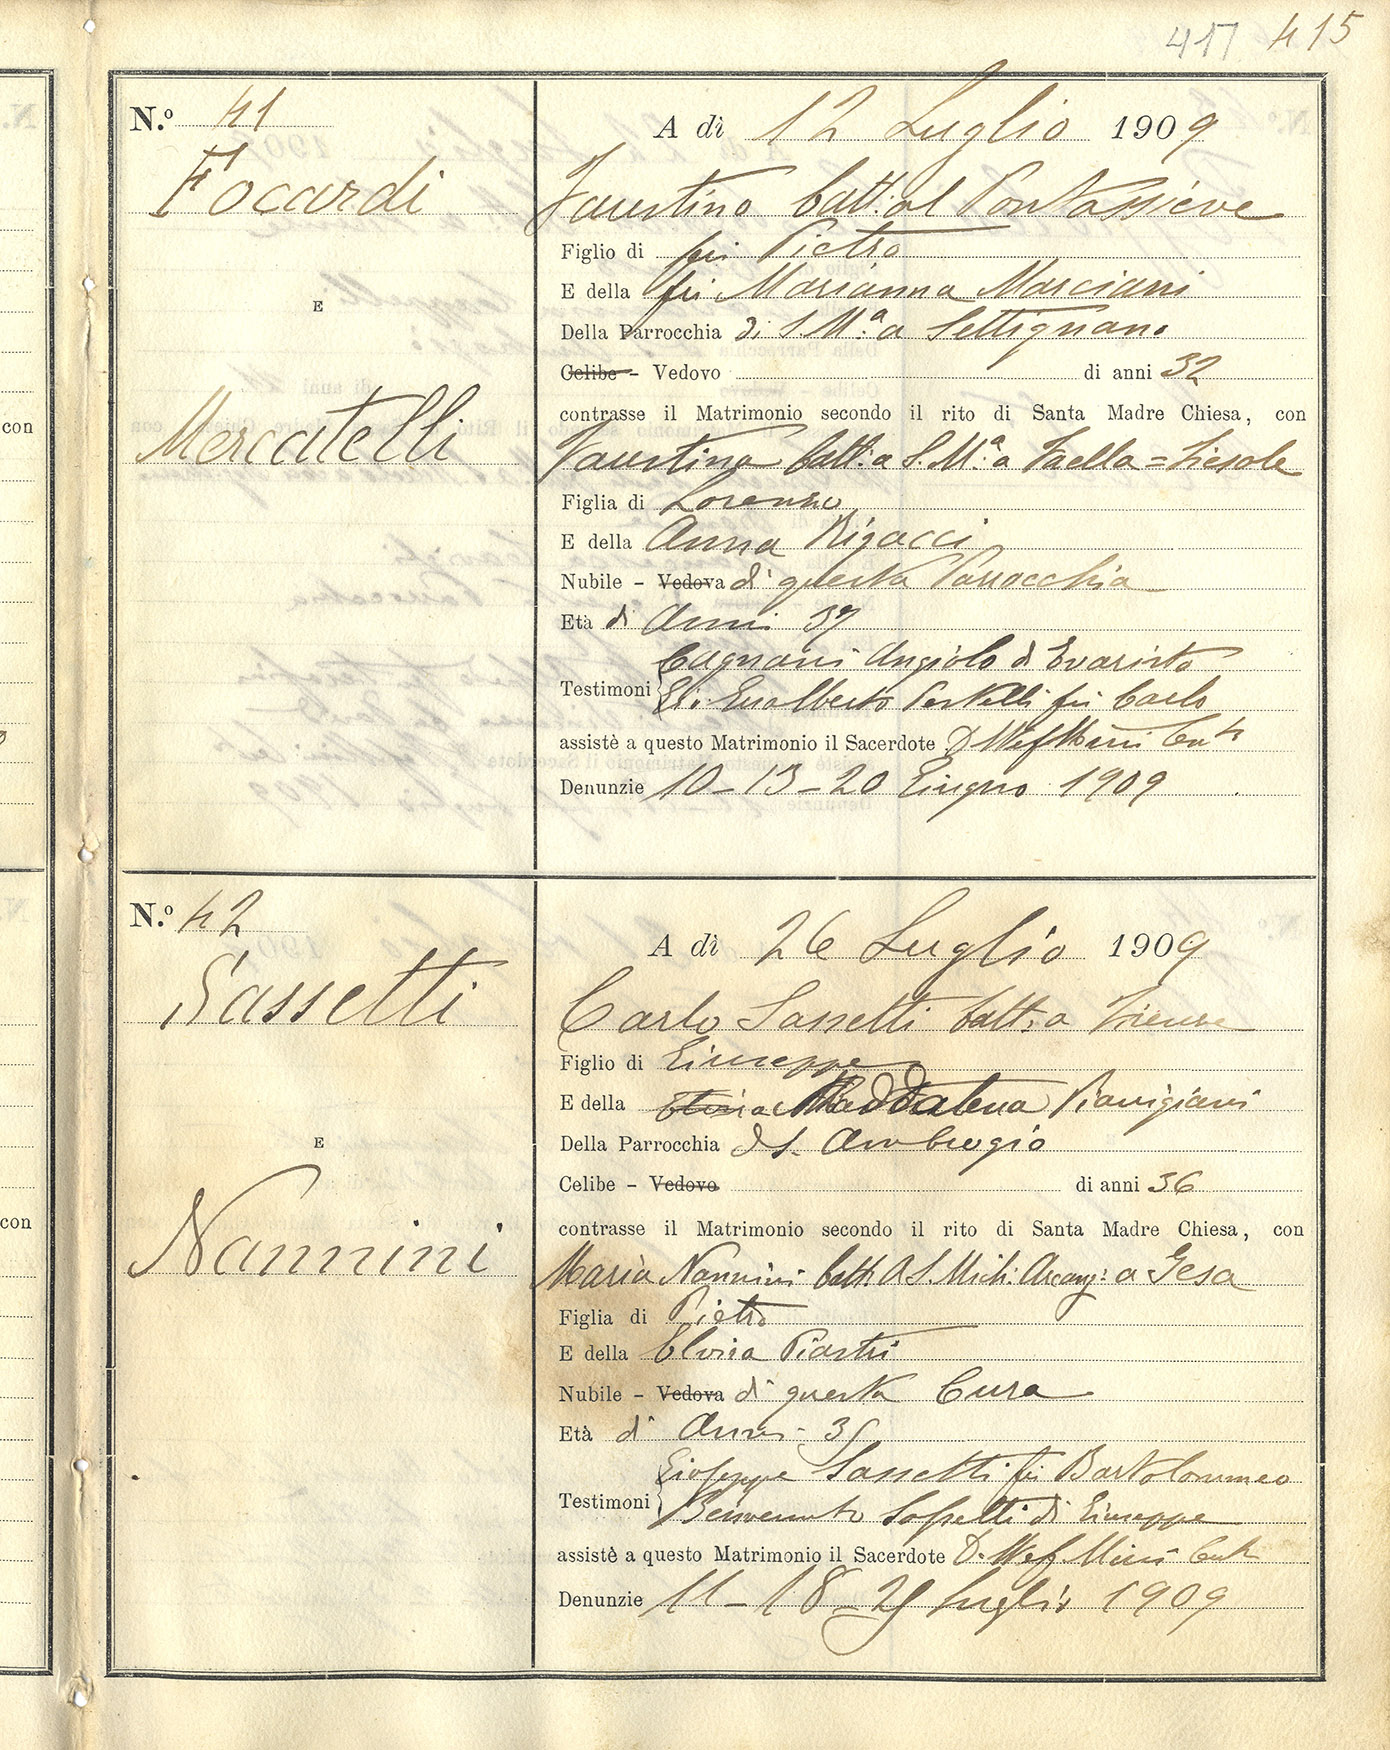 417 415
N.º 41
A dì 12 Luglio 1909
Focardi
Faustino batt: al Pontassieve
Figlio di fu Pietro
E della fu Marianna Marciani
E
Della Parrocchia di S. M.ª a Settignano
Celibe - Vedovo di anni 32
contrasse il Matrimonio secondo il rito di Santa Madre Chiesa, con
Mercatelli
Faustina batt: a S. M.ª a = Fiesole
Figlia di Lorenzo
E della Anna Rigacci
Nubile - Vedova di questa Parrocchia
Età di Anni 37
Testimoni Cagnani Angiolo di Evaristo
Eralberto fu Carlo
assistè a questo Matrimonio il Sacerdote D.
Denunzie 10-13-20 Giugno 1909
N.º 42
A dì 26 Luglio 1909
Sassetti
Carlo Sassetti batt: a Firenze
Figlio di Giuseppe
E della Maddalena Pianigiani
E
Della Parrocchia di S. Ambrogio
Celibe - Vedovo di anni 36
contrasse il Matrimonio secondo il rito di Santa Madre Chiesa, con
Nannini
Maria Nannini batt: a S. Mich: Arcang: a
Figlia di Pietro
E della Elvira Piastri
Nubile - Vedova di questa Cura
Età di Anni 35
Testimoni Giuseppe Sassetti fu Bartolommeo
Benvenuto Sassetti di Giuseppe
assistè a questo Matrimonio il Sacerdote D.
Denunzie 11-18-25 Luglio 1909
con
con